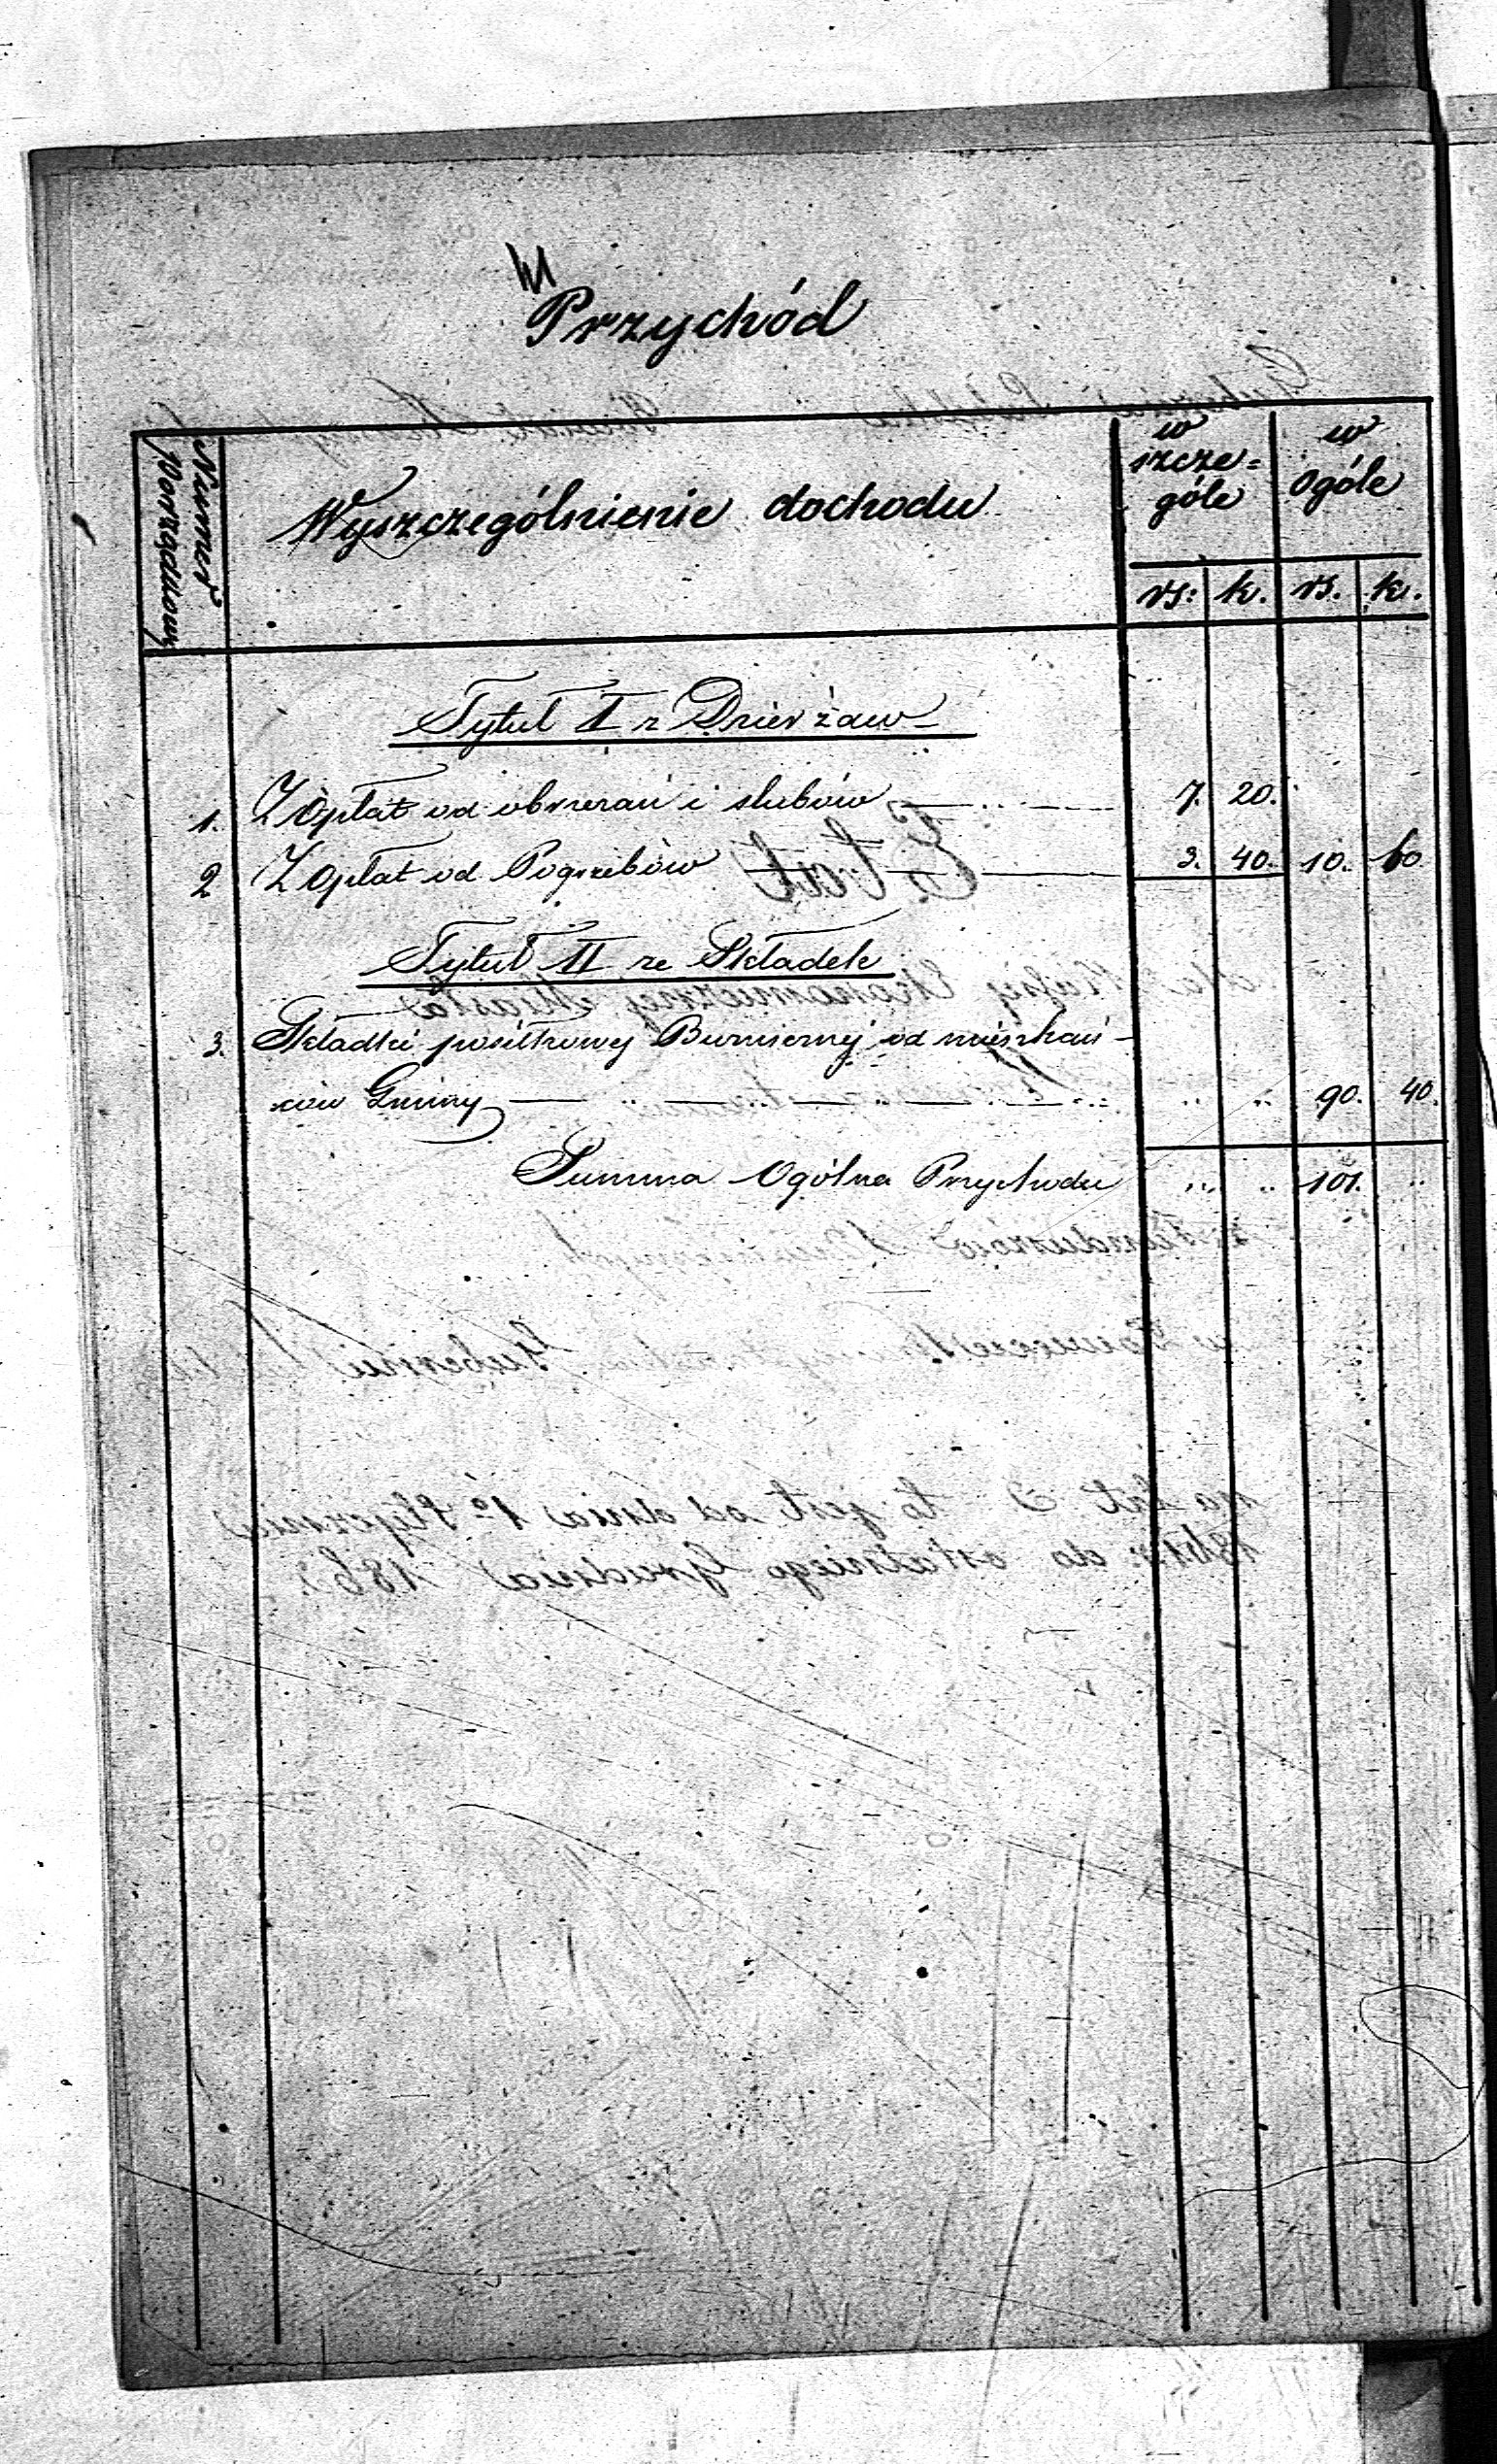 Przychód
Numer Porządkowy
Wyszczególnienie dochodu
w szcze=
góle
w
ogóle
rs: k. rs. k.
Tytuł I z Dzierżaw
1. Z Opłat od obrzezań i slubów 7. 20.
2 Z Opłat od Pogrzebów 3. 40. 10. 60
Tytuł II ze Składek
3. Składki posiłkowej od mieszkań-
ców Gminy 90. 40.
Summa Ogólna Przychodu 101.